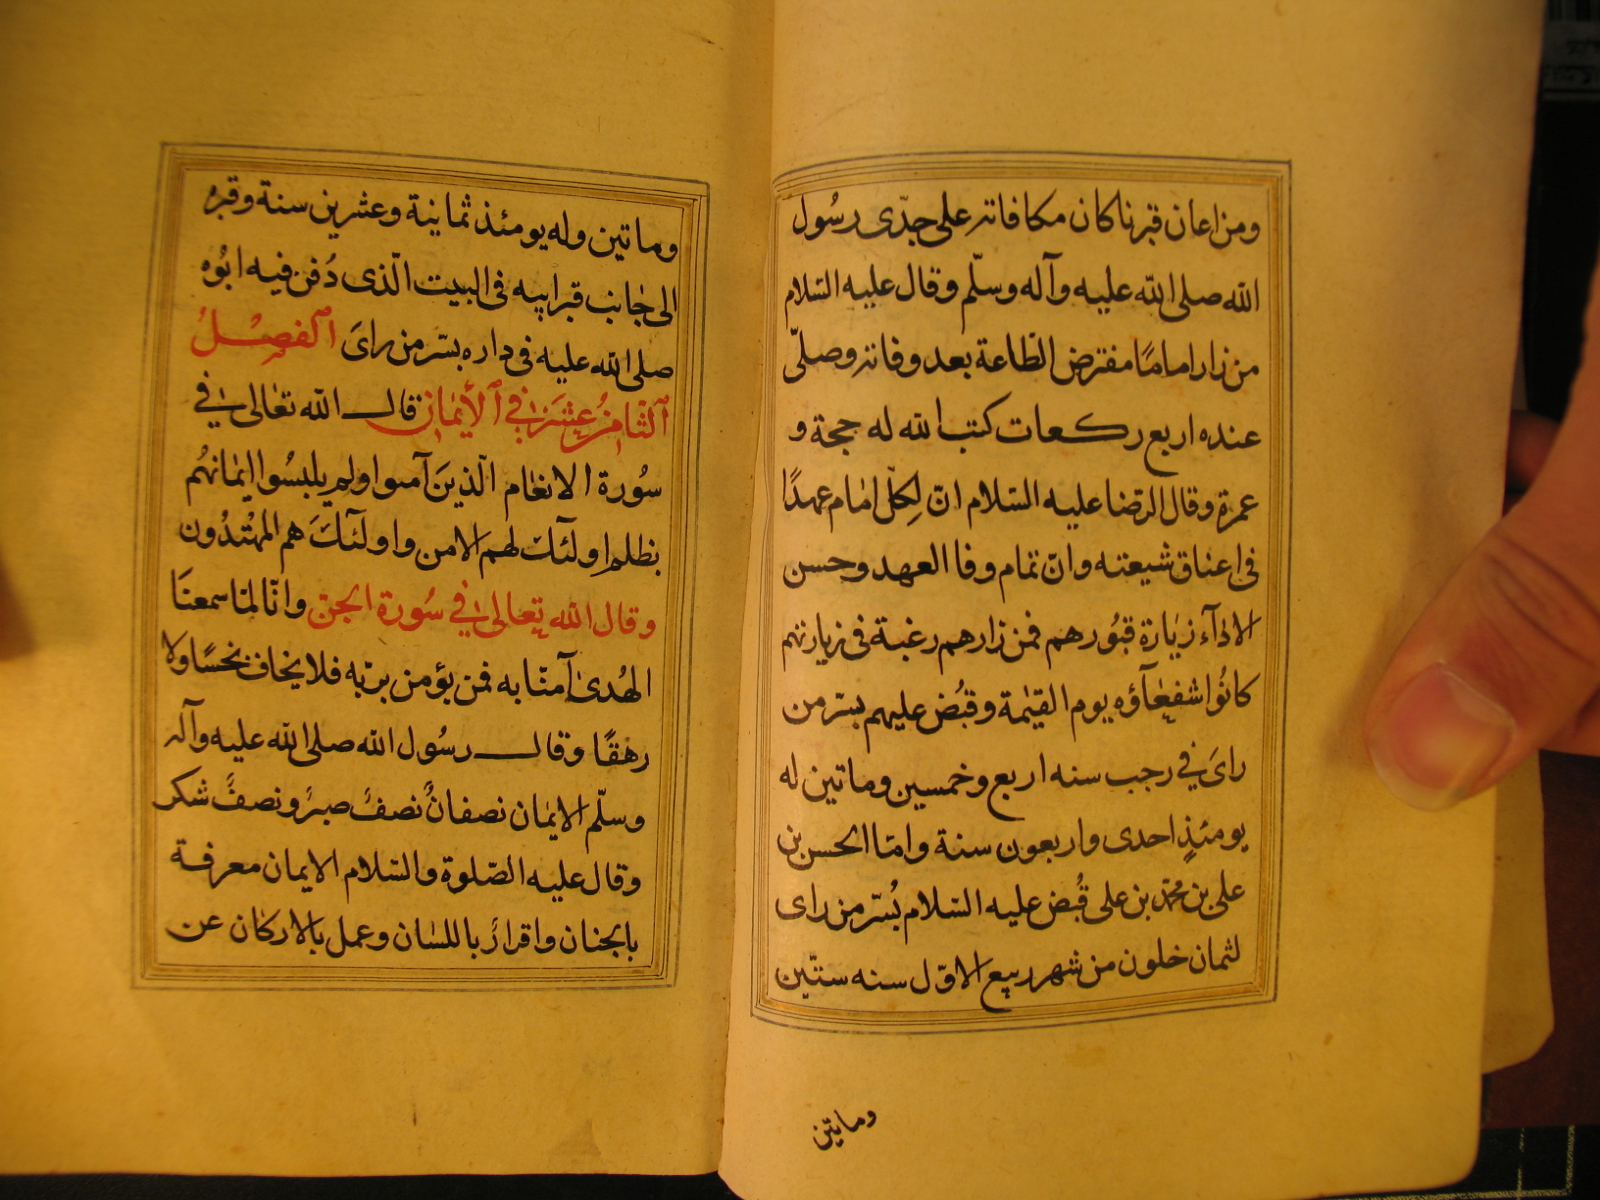 ومن اعان قبرنا كان مكافاته على جدّى رسُول
الله صلى الله عليه وآله وسلّم وقال عليه السّلام
من زار امامًا مفترض الطاعة بعد وفاته وصلّى
عنده اربع ركعات كتب الله له حجة و
عمرة وقال الرّضا عليه السّلام انّ لِكلّ امام عهدًا
فى اعناق شيعته وانّ تمام وفا العهد وحسن
الاداۤء زيارة قبُورهم فمن زارهم رغبة فى زيارتهم
كانُوا شفعاۤؤه يوم القيٰمة وقبُض عليهم بسّر من
راىَ فى رجب سنه اربع وخمسين وماتين له
يومئذٍ احدى واربعون سنة وامّا الحسن بن
على بن محمّد بن على قُبض عليه السّلام بُسّر من راى
لثمان خلون من شهر ربيع الاوّل سنه ستّين
وماتين
وماتين وله يومئذ ثمانية وعشرين سنة وقبره
الى جٰانب قبر ابيه فى البيت الّذى دُفن فيه ابُوه
صلى الله عليه فى داره بسّر من راىَ الفصل
الثامن عشر فى الأيمان قال الله تعٰالى فى
سُورة الانعٰام الّذينَ آمنوا ولم يلبسُوا ايمٰانهُم
بظلم اولئآك لهم الامن واولئآكَ هم المهُتدُون
وقال الله تعالى فى سُورة الجن وانّا لمّا سمعنَا
الهُدىٰ آمنّا به فمن يؤمن بربّه فلا يخاف بخسًا ولا
رهقًا وقال رسُول الله صلى الله عليه وآله
وسلّم الايمٰان نصفانٌ نصفُ صبرُ ونصفُ شكر
وقال عليه الصّلوة والسّلام الايمان معرفة
بالجنان واقرارُ باللسٰان وعمل بالاركان عن